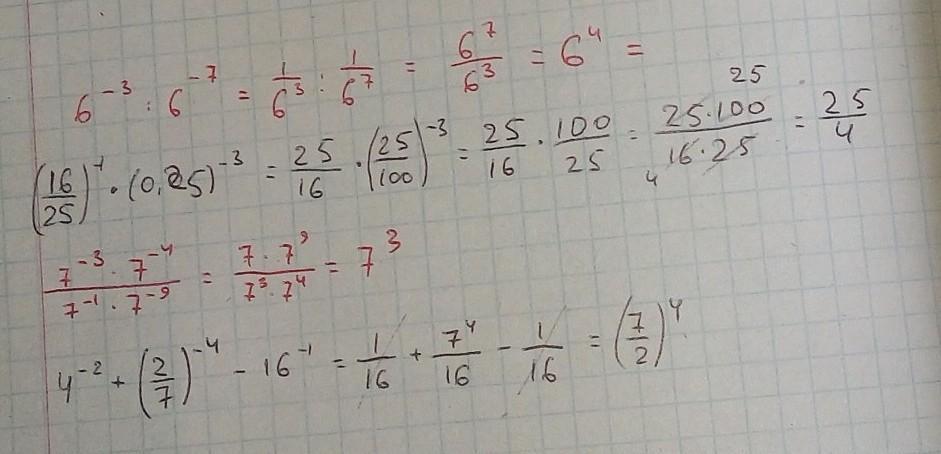 6⁻³ : 6⁻⁷ = 1/6³ : 1/6⁷ = 6⁷/6³ = 6⁴ =
(16/25)⁻¹ · (0,25)⁻³ = 25/16 · (25/100)⁻³ = 25/16 · 100/25 = 25·100/16·25 = 25/4
25
4
7⁻³ · 7⁻⁴/7⁻¹ · 7⁻⁹ = 7 · 7⁹/7³ · 7⁴ = 7³
4⁻² + (2/7)⁻⁴ - 16⁻¹ = 1/16 + 7⁴/16 - 1/16 = (7/2)⁴